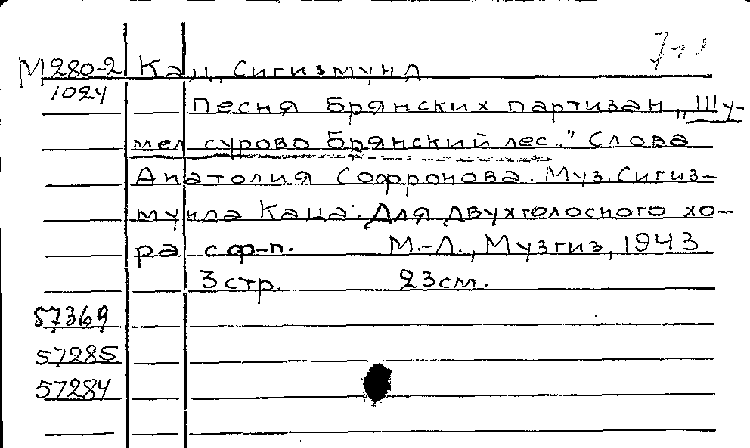 М280-2 Кац, Сигизмунд
1024 Песня Брянских партизан „Шу-
мел сурово Брянский лес." Слова
Анатолия Софронова. Муз. Сигиз-
мунда Каца. Для двухголосного хо-
ра с ф-п. М.-Л., Музгиз, 1943
3 стр. 23 см.
57369
57285
57284